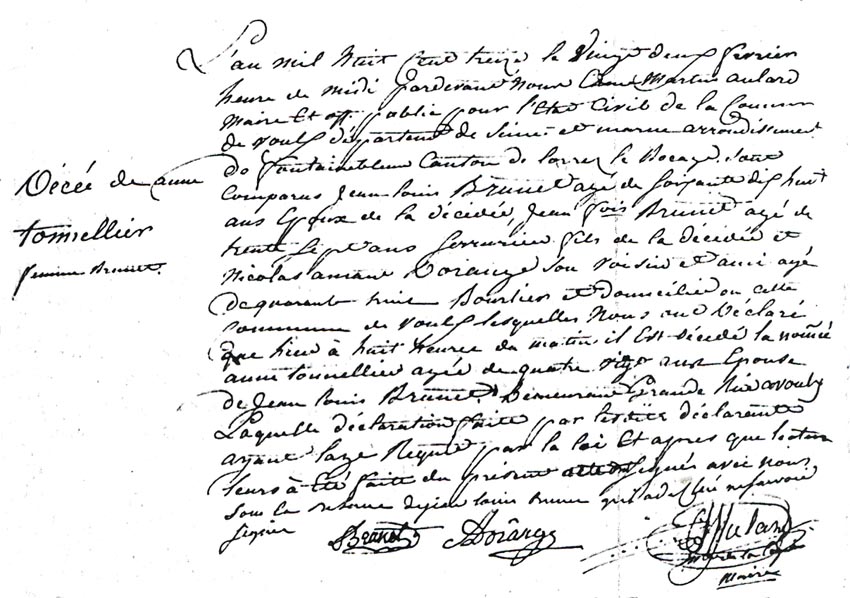 L'an mil huit cent treize le vingt deux fevrier
heure de midi pardevant nous Martin aulard
Maire Et off. public pour l'Etat Civil de la Commune
de voulx départemt de Seine et marne arrondissement
de fontainebleau Canton de lorrez le Bocage, sont
Comparus Jean louis Brunet agé de soixante dix huit
ans Epoux de la décédée, Jean fois Brunet agé de
trente Sept ans Serrurier fils de la décédée et
Nicolas amant Dorange son voisin et ami agé
de quarante huit Bourlier et domicilié en cette
Commune de voulx lesquelles Nous ont Déclaré
que hier à huit heures du matin, il Est décédé la nommée
anne tonnellier agée de quatre vingt ans Epouse
de Jean louis Brunet, Demeurant Grande Rue a voulx
Laquelle déclaration faite par lesdits déclarants
ayant l'age Requit par la loi Et apres que lecture
leurs à Eté faite du présent signés avec nous
sous la reserve dejean louis Brunet qui a declaré ne savoir
signer
Décée de anne
tonnellier
femme Brunet.
Brunet
Dorange
Aulard
Maire